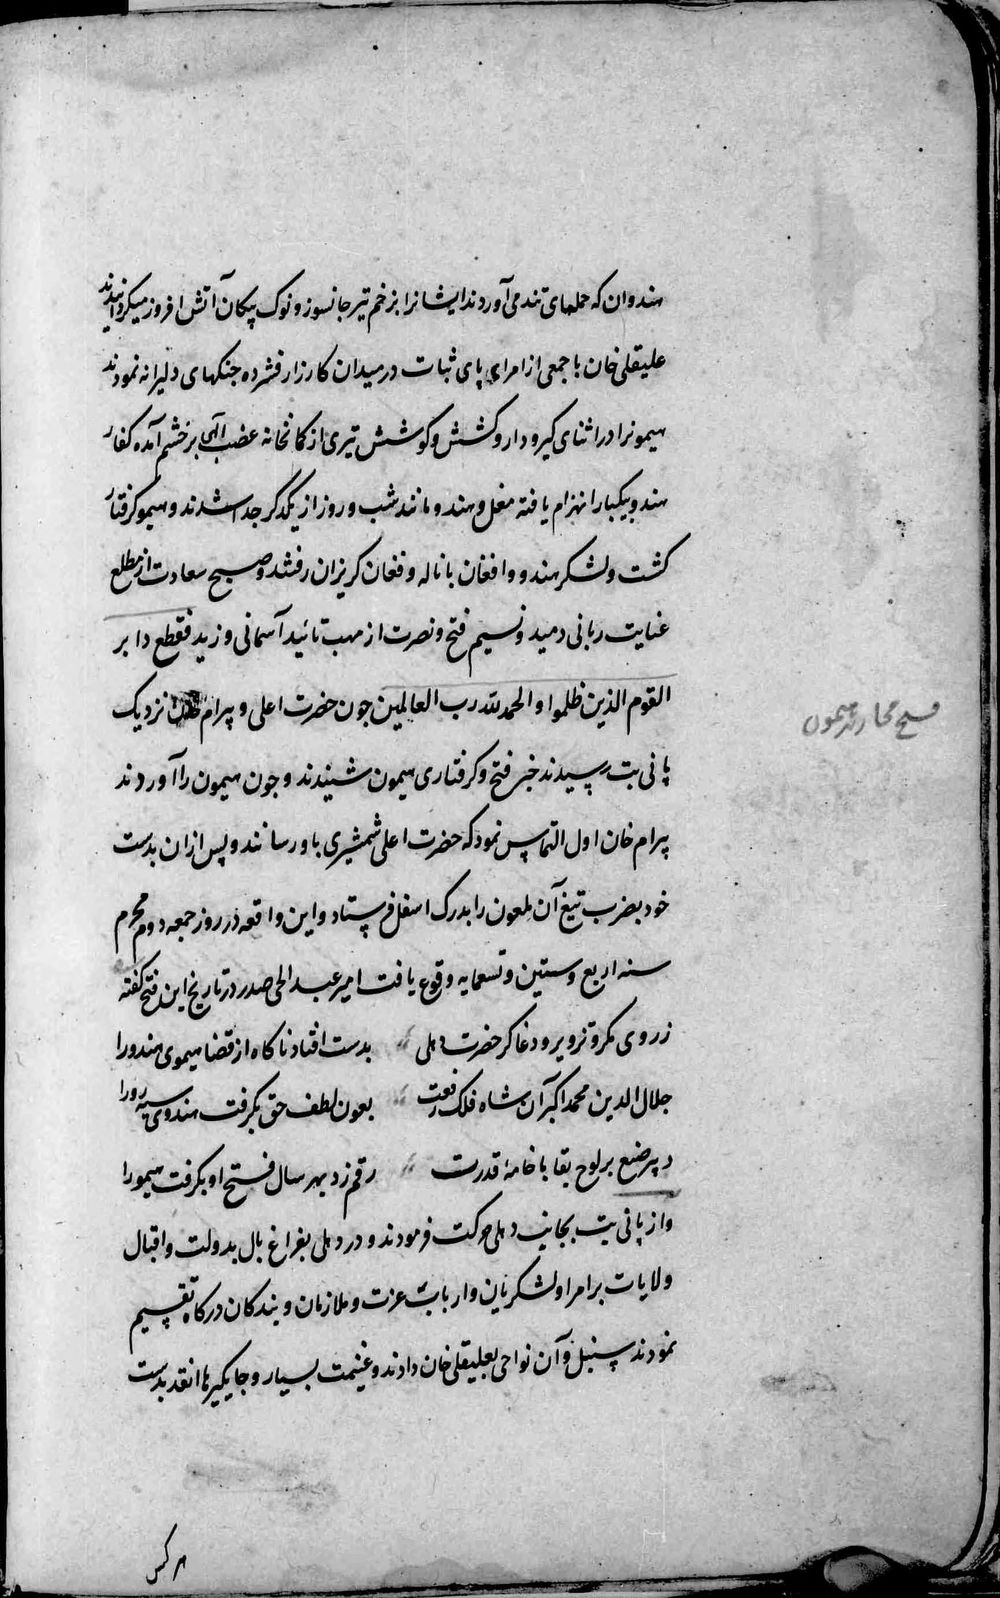 هندوان که حملهای تند می آوردند ایشانرا بزخم تیر جانسوز و نوک پیکان آتش افروز میگردانیدند
علیقلی خان با جمعی از امرای پای ثبات در میدان کارزار فشرده جنکهای دلیرانه نمودند
هیمو نرا در اثنای کیر و دار و کشش و کوشش تیری از کمانخانه غضب الهی بر خشم آمده کفار
هندو بیکبار انهزام یافته مغل و هندو مانند شب و روز از یکدکر جدا شدند و هیمو کرفتار
کشت و لشکر هندو و افغان با ناله و فغان کریزان رفتند و صبح سعادت از مطلع
عنایت ربانی دمید و نسیم فتح و نصرت از مهب تائید آسمانی وزید فقطع دابر
القوم الذین ظلموا و الحمد لله رب العالمین چون حضرت اعلی و پیرام خان نزدیک
پانی پت رسیدند خبر فتح و کرفتاری هیمون شنیدند و چون هیمون را آوردند
پیرام خان اول التماس نمود که حضرت اعلی شمشیری باو رسانند و پس ازان بدست
خود بضرب تیغ آن ملعون را بدرک اسفل فرستاد و این واقعه در روز جمعه دوم محرم
سنه اربع و ستین و تسعمایه وقوع یافت امیر عبد الحی صدر در تاریخ این فتح کفته
ز روی مکر و تزویر و دغا کر حضرت دهلی بدست افتاد ناکاه از قضا هیموی هندو را
جلال الدین محمد اکبر آن شاه فلک رفعت بعون لطف حق بکرفت هندوی سیه رو را
دبیر صنع بر لوح بقا با خامهٔ قدرت رقم زد بهر سال فتح او بکرفت هیمو را
و از پانی پت بجانب دهلی حرکت فرمودند و در دهلی بفراغ بال بدولت و اقبال
ولایات بر امرا و لشکریان و ارباب عزت و ملازمان و بندکان درکاه تقسیم
نمودند سنبل و آن نواحی بعلیقلی خان دادند و غنیمت بسیار و جایکیرها نقد بدست
هر کس
فتح محاربه هیمون